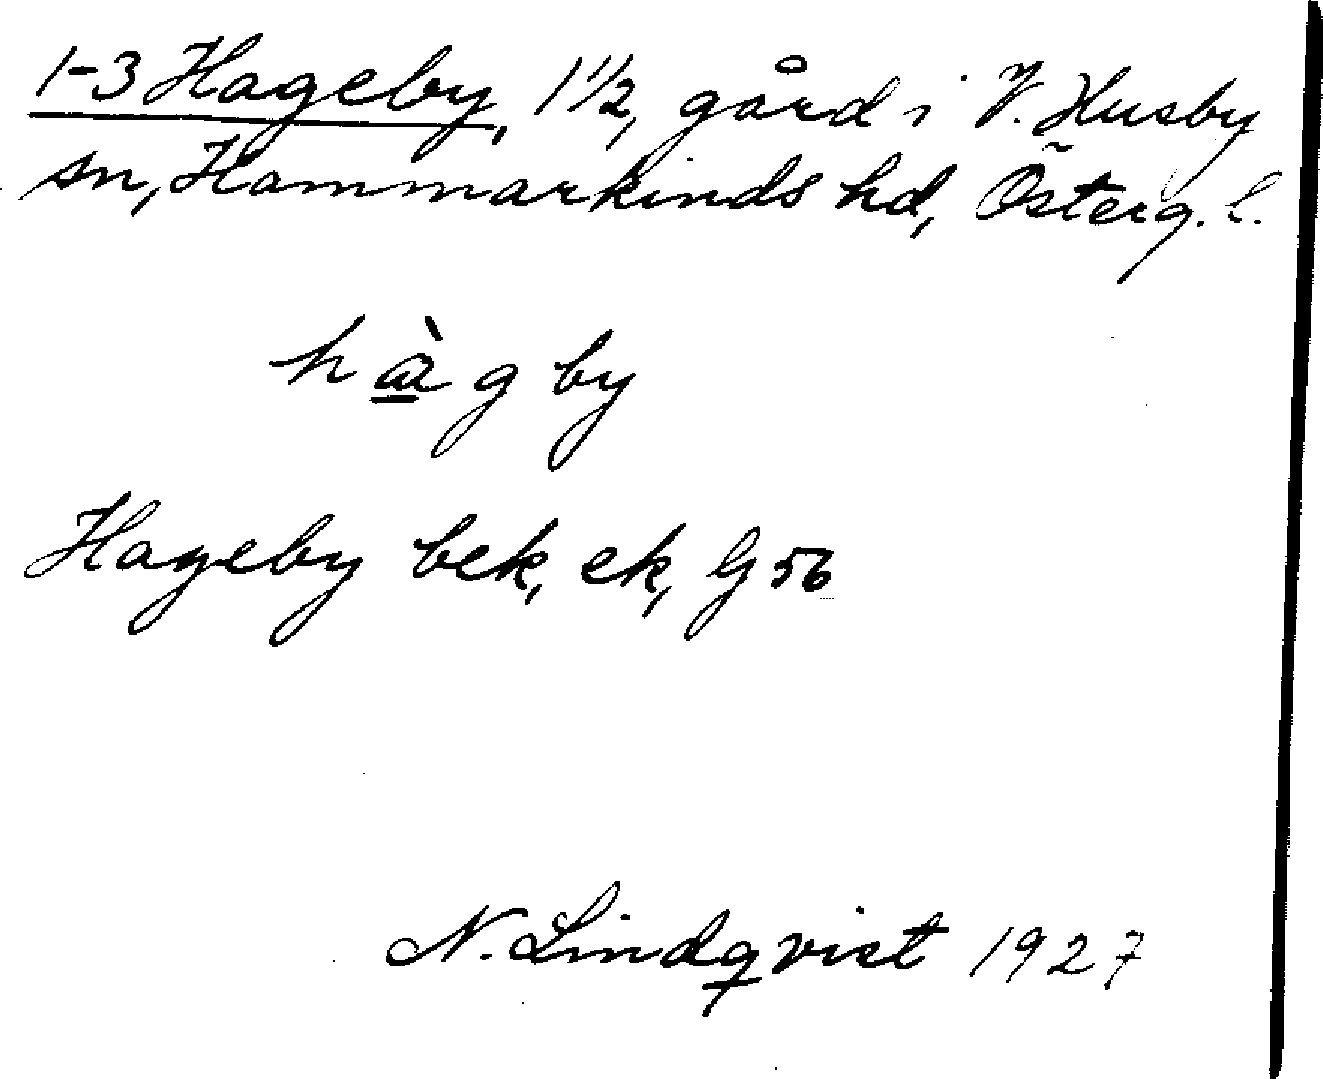 1-3 Hageby, 1 1/2, gård i V. Husby
sn, Hammarkinds hd, Österg. l.
hàgby
Hageby bek, ek, G 56
N. Lindqvist 1927